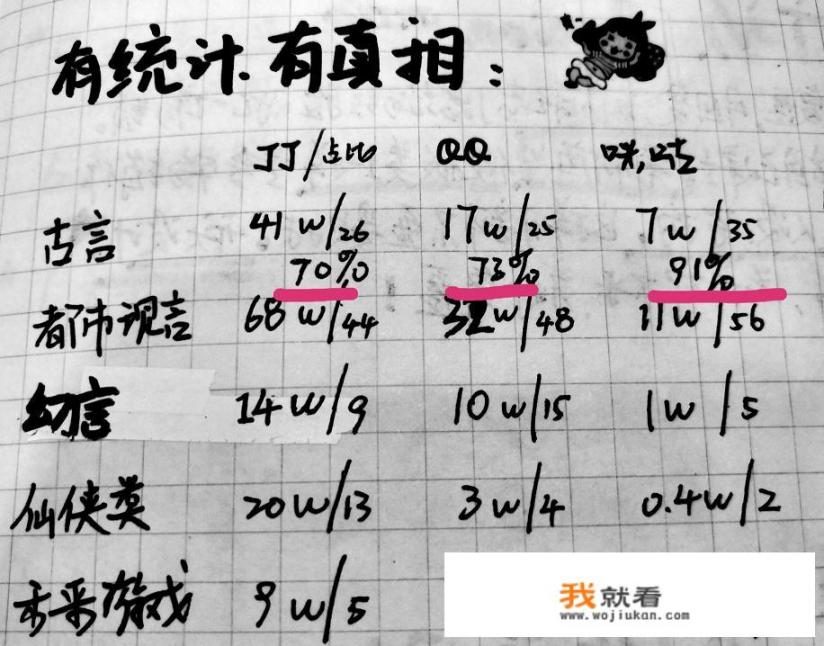 有统计.有真相:
JJ/占比 QQ 咪,咕
古言 41w/26 17w/25 7w/35
70% 73% 91%
都市现言 68w/44 32w/48 11w/56
幻言 14w/9 10w/15 1w/5
仙侠类 20w/13 3w/4 0.4w/2
未来游戏 9w/5
我就看
www.wojiukan.com